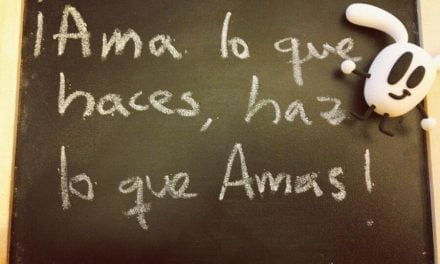 ¡Ama lo que
haces, haz
lo que Amas!